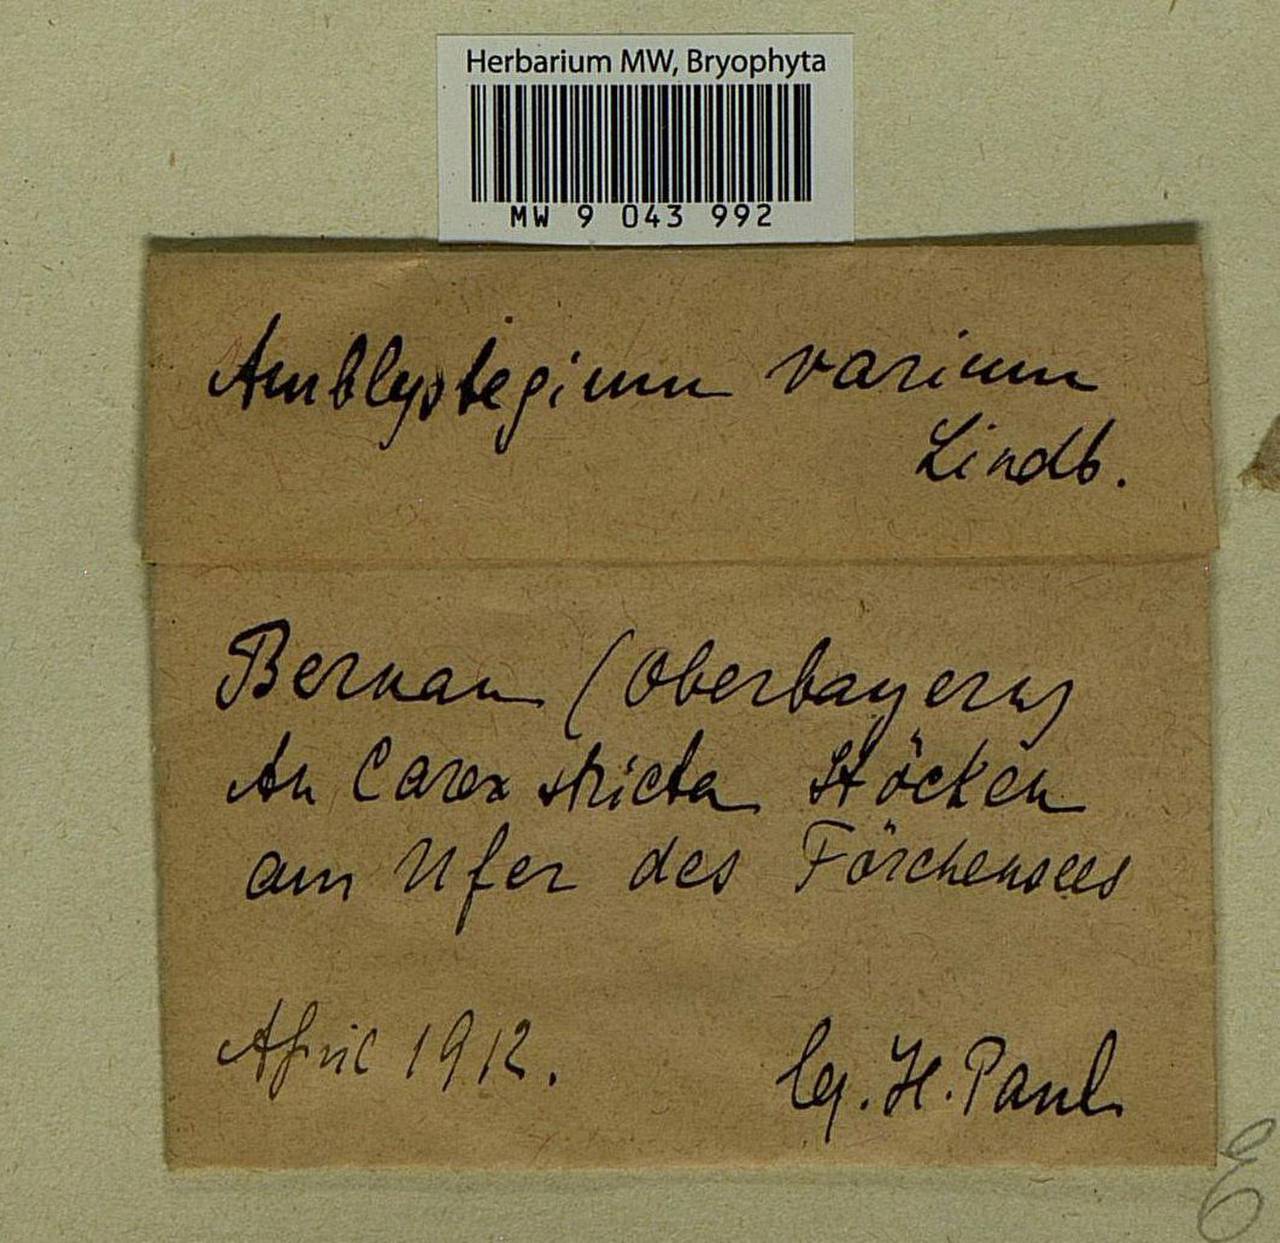 Herbarium MW, Bryophyta
MW 9 043 992
Amblystegium varium
Lindb.
Bernau (Oberbayern)
An Carex stricta Stöcken
am Ufer des Förchensees
April 1912.
leg. H. Paul
E